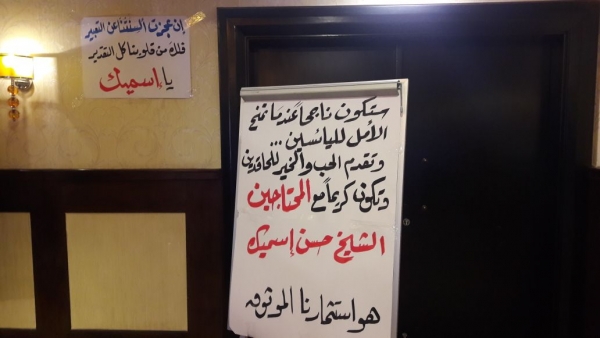 إن عجزت ألسنتنا عن التعبير
فلك من قلوبنا كل التقدير
يا إسميك
ستكون ناجحاً عندما تمنح
الأمل لليائسين ...
وتقدم الحب والخير للحاقدين
وتكون كريماً مع المحتاجين
الشيخ حسن إسميك
هو استثمارنا الموثوق